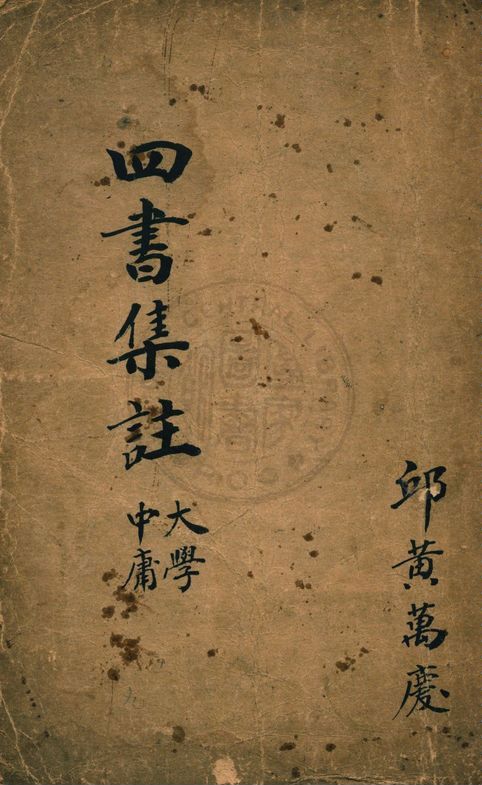 四書集註
大學
中庸
邱黃萬慶